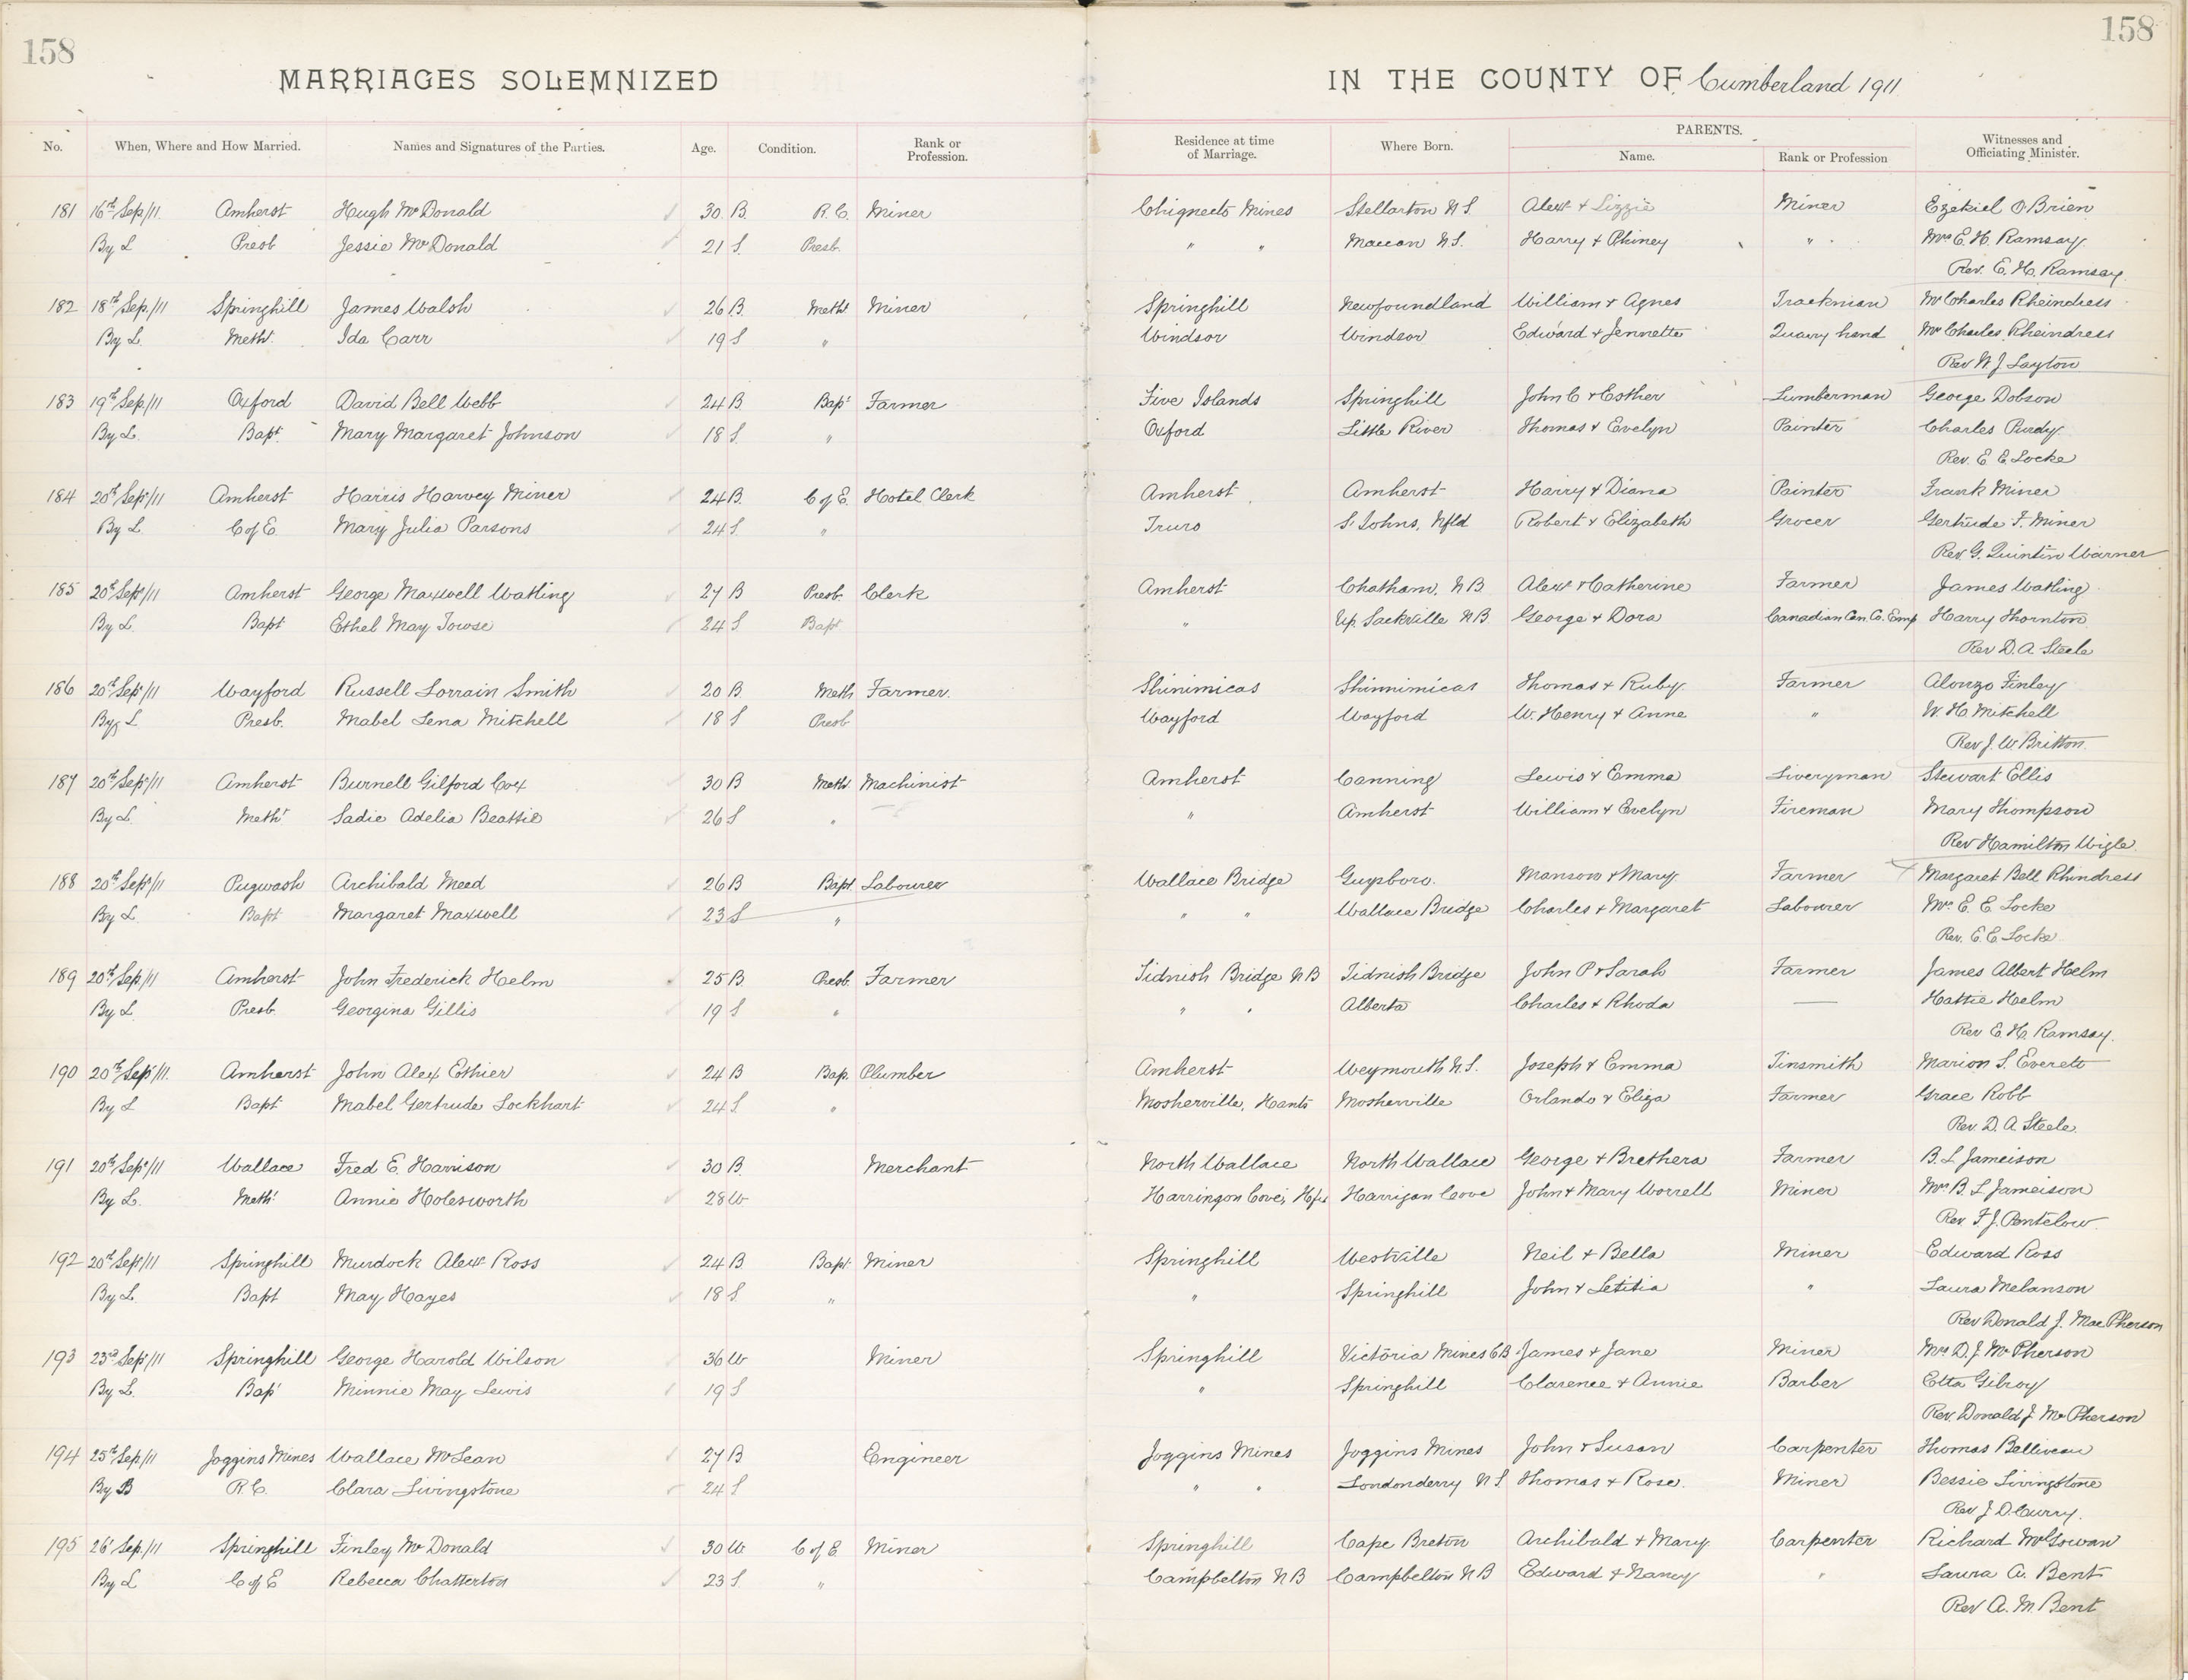 158 158
MARRIAGES SOLEMNIZED IN THE COUNTY OF Cumberland 1911
No. When, Where and How Married. Names and Signatures of the Parties. Age. Condition. Rank or Profession. Residence at time of Marriage. Where Born. PARENTS. Name. Rank or Profession Witnesses and Officiating Minister.
181 16th Sep/11 Amherst Hugh McDonald 30 B. R.C. Miner Chignecto Mines Stellarton N.S. Alex + Lizzie Miner Ezekiel O'Brien
By L Presb Jessie McDonald 21 S. Presb. " " Maccan N.S. Harry + Phiney " Mrs E. H. Ramsay
Rev. E. H. Ramsay
182 18th Sep./11 Springhill James Walsh 26 B. Meth Miner Springhill Newfoundland William + Agnes Trackman Mr Charles Rheindress
By L. Meth. Ida Carr 19 S " Windsor Windsor Edward + Jennette Quarry hand Mr Charles Rheindress
Rev W. J. Layton
183 19th Sep./11 Oxford David Bell Webb 24 B. Bapt Farmer Five Islands Springhill John C + Esther Lumberman George Dobson
By L. Bapt. Mary Margaret Johnson 18 S. " Oxford Little River Thomas + Evelyn Painter Charles Purdy
Rev. E. E. Locke
184 20th Sep/11 Amherst Harris Harvey Miner 24 B. C of E. Hotel Clerk Amherst Amherst Harry + Diana Painter Frank Miner
By L. C of E. Mary Julia Parsons 24 S. " Truro St Johns, Nfld Robert + Elizabeth Grocer Gertrude F. Miner
Rev G. Quintin Warner
185 20th Sep/11 Amherst George Maxwell Watling 27 B Presb. Clerk Amherst Chatham, N.B. Alex + Catherine Farmer James Watling
By L. Bapt Ethel May Towse 24 S Bapt " Up. Sackville N.B. George + Dora Canadian Cen. Co. Emp Harry Thornton
Rev D. A. Steele
186 20th Sep/11 Wayford Russell Lorrain Smith 20 B Meth Farmer. Shinimicas Shinnimicas Thomas + Ruby Farmer Alonzo Finley
By L. Presb. Mabel Lena Mitchell 18 S Presb Wayford Wayford W. Henry + Anne " W. H. Mitchell
Rev J. W Britton
187 20th Sep/11 Amherst Burnell Gilford Cox 30 B Meth. Machinist Amherst Canning Lewis + Emma Liveryman Stewart Ellis
By L. Meth Sadie Adelia Beattie 26 S " " Amherst William + Evelyn Fireman Mary Thompson
Rev Hamilton Wigle
188 20th Sep/11 Pugwash Archibald Mead 26 B Bapt. Labourer Wallace Bridge Guysboro. Manson + Mary Farmer Margaret Bell Rhindress
By L. Bapt Margaret Maxwell 23 S " " " Wallace Bridge Charles + Margaret Labourer Mrs E. E. Locke
Rev. E. E. Locke
189 20th Sep./11 Amherst John Frederick Helm 25 B. Presb. Farmer Tidnish Bridge N B Tidnish Bridge John P + Sarah Farmer James Albert Helm
By L. Presb. Georgina Gillis 19 S " " " Alberta Charles + Rhoda — Hattie Helm
Rev E. H. Ramsay.
190 20th Sep/11. Amherst John Alex Ethier 24 B Bap. Plumber Amherst Weymouth N.S. Joseph + Emma Tinsmith Marion S. Everett
By L Bapt Mabel Gertrude Lockhart 24 S " Mosherville, Hants Mosherville Orlando + Eliza Farmer Grace Robb
Rev. D. A Steele.
191 20th Sep/11 Wallace Fred E. Harrison 30 B. Merchant North Wallace North Wallace George + Brethera Farmer B. L Jameison
By L. Meth Annie Holesworth 28 W. Harrigon Cove, Hfx Harrigan Cove John + Mary Worrell Miner Mrs B. L Jameison
Rev. F. J. Pentelow.
192 20th Sep/11 Springhill Murdock Alex Ross 24 B Bapt Miner Springhill Westville Neil + Bella Miner Edward Ross
By L. Bapt May Hayes 18 S. " " Springhill John + Letitia " Laura Melanson
Rev Donald J. MacPherson
193 23rd Sep/11 Springhill George Harold Wilson 36 W Miner Springhill Victoria Mines C B James + Jane Miner Mrs D. J. McPherson
By L. Bap Minnie May Lewis 19 S " Springhill Clarence + Annie Barber Etta Gilroy
Rev. Donald J. McPherson
194 25th Sep/11 Joggins Mines Wallace McLean 27 B Engineer Joggins Mines Joggins Mines John + Susan Carpenter Thomas Belliveau
By B R.C. Clara Livingstone 24 S " " Londonderry N S Thomas + Rose. Miner Bessie Livingstone
Rev J D. Curry.
195 26 Sep./11 Springhill Finley McDonald 30 W C of E. Miner Springhill Cape Breton Archibald + Mary Carpenter Richard McGowan
By L C of E Rebecca Chatterton 23 S. " Campbelton N B Campbelton N B Edward + Nancy " Laura A. Bent
Rev A. M. Bent